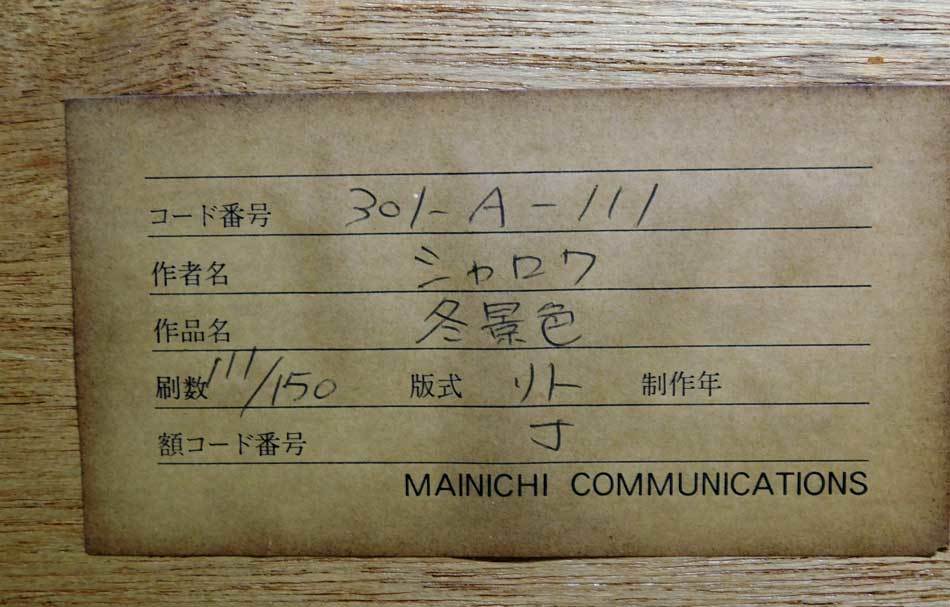 コード番号 301-A-111
作者名 シャロワ
作品名 冬景色
刷数 111/150 版式 リト 制作年
額コード番号 J
MAINICHI COMMUNICATIONS